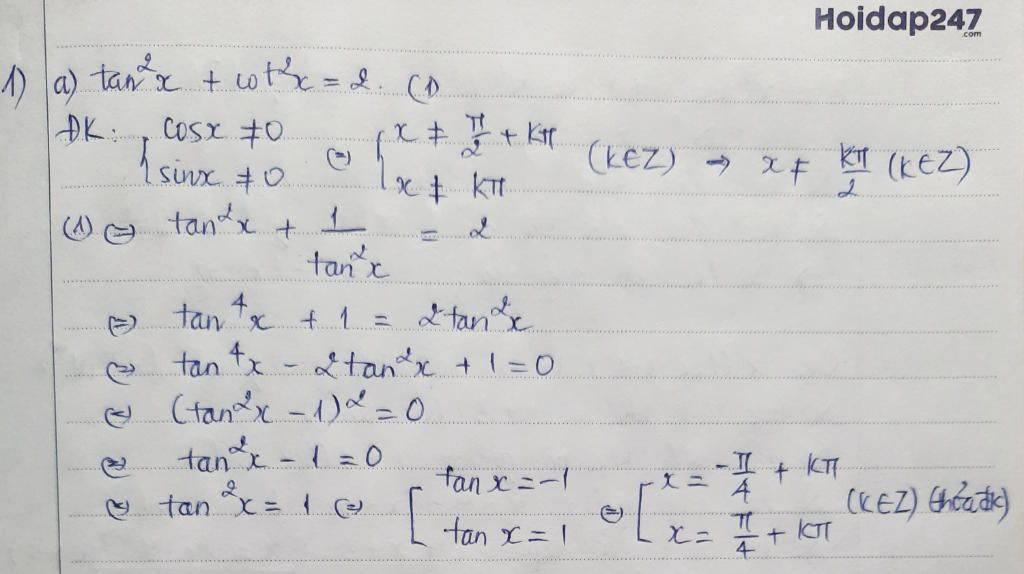 Hoidap247
.com
1) a) tan²x + cot²x = 2. (1)
ĐK: { cosx ≠ 0 ; sinx ≠ 0 (=) { x ≠ π/2 + kπ ; x ≠ kπ (k∈Z) → x ≠ kπ/2 (k∈Z)
(1) (=) tan²x + 1/tan²x = 2
(=) tan⁴x + 1 = 2tan²x
(=) tan⁴x - 2tan²x + 1 = 0
(=) (tan²x - 1)² = 0
(=) tan²x - 1 = 0
(=) tan²x = 1 (=) [ tan x = -1 ; tan x = 1 (=) [ x = -π/4 + kπ ; x = π/4 + kπ (k∈Z) (thỏa đk)